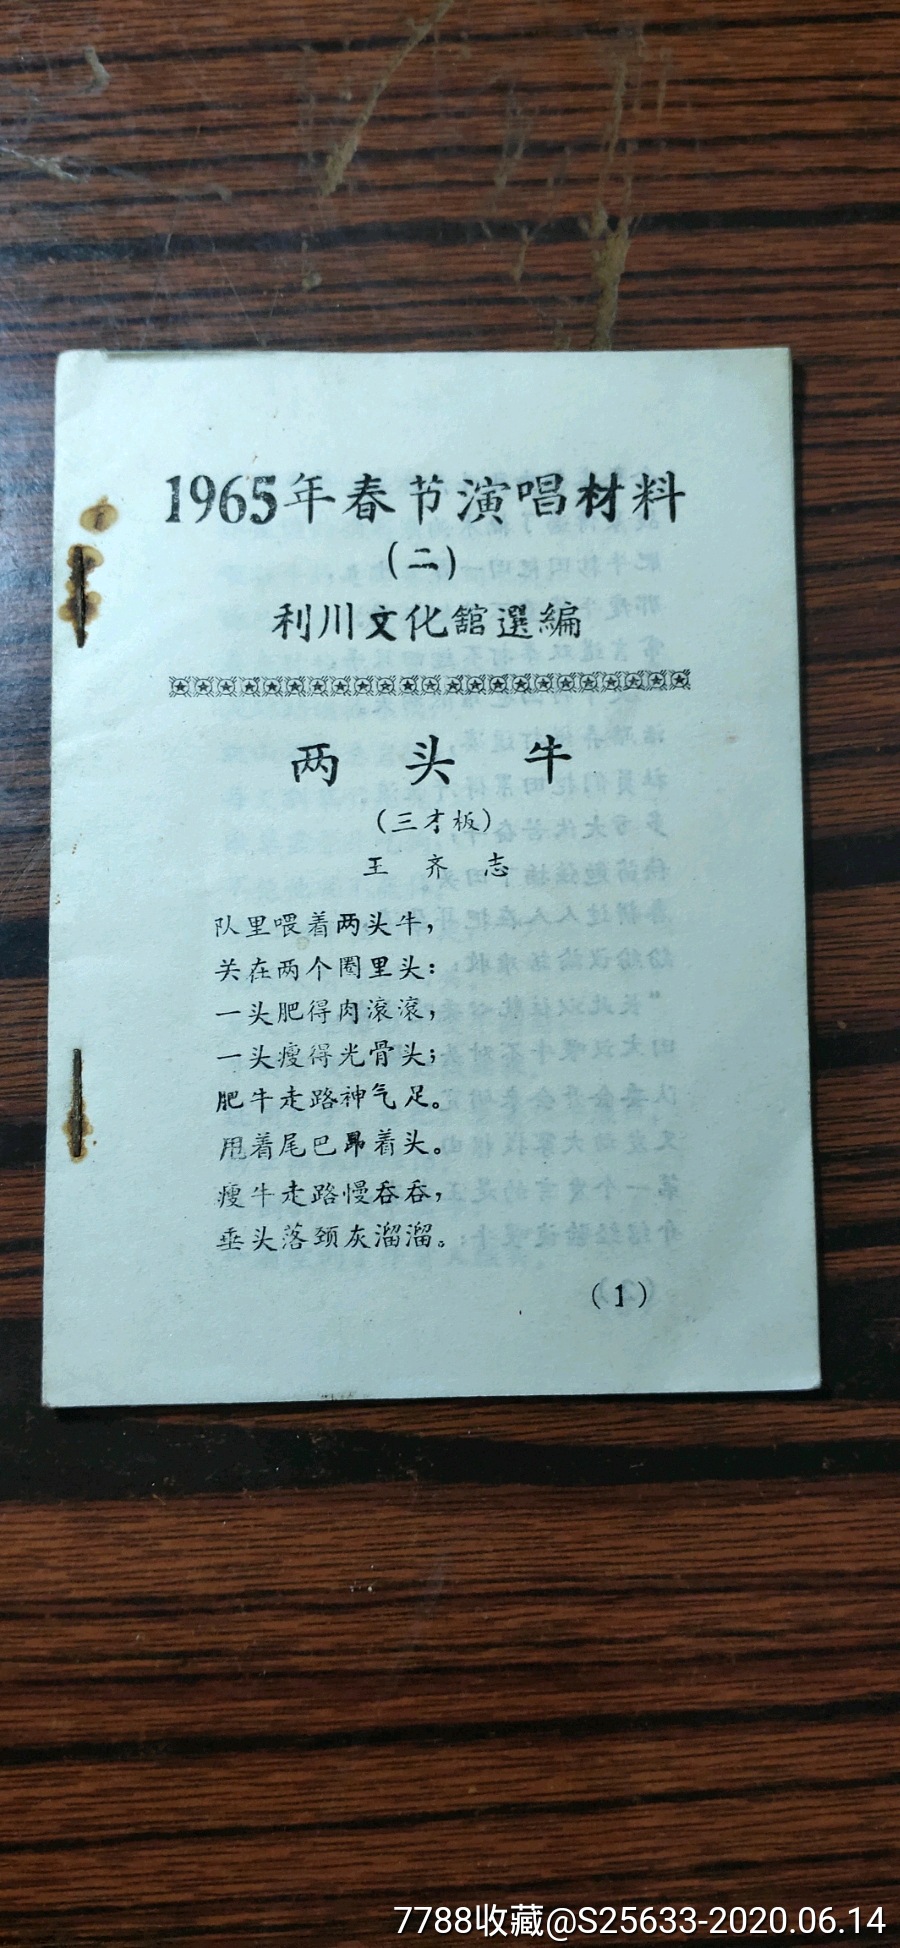 1965年春节演唱材料
(二)
利川文化舘選編
两头牛
(三才板)
王齐志
队里喂着两头牛，
关在两个圈里头：
一头肥得肉滚滚，
一头瘦得光骨头；
肥牛走路神气足。
甩着尾巴昂着头。
瘦牛走路慢吞吞，
垂头落颈灰溜溜。
(1)
7788收藏@S25633-2020.06.14